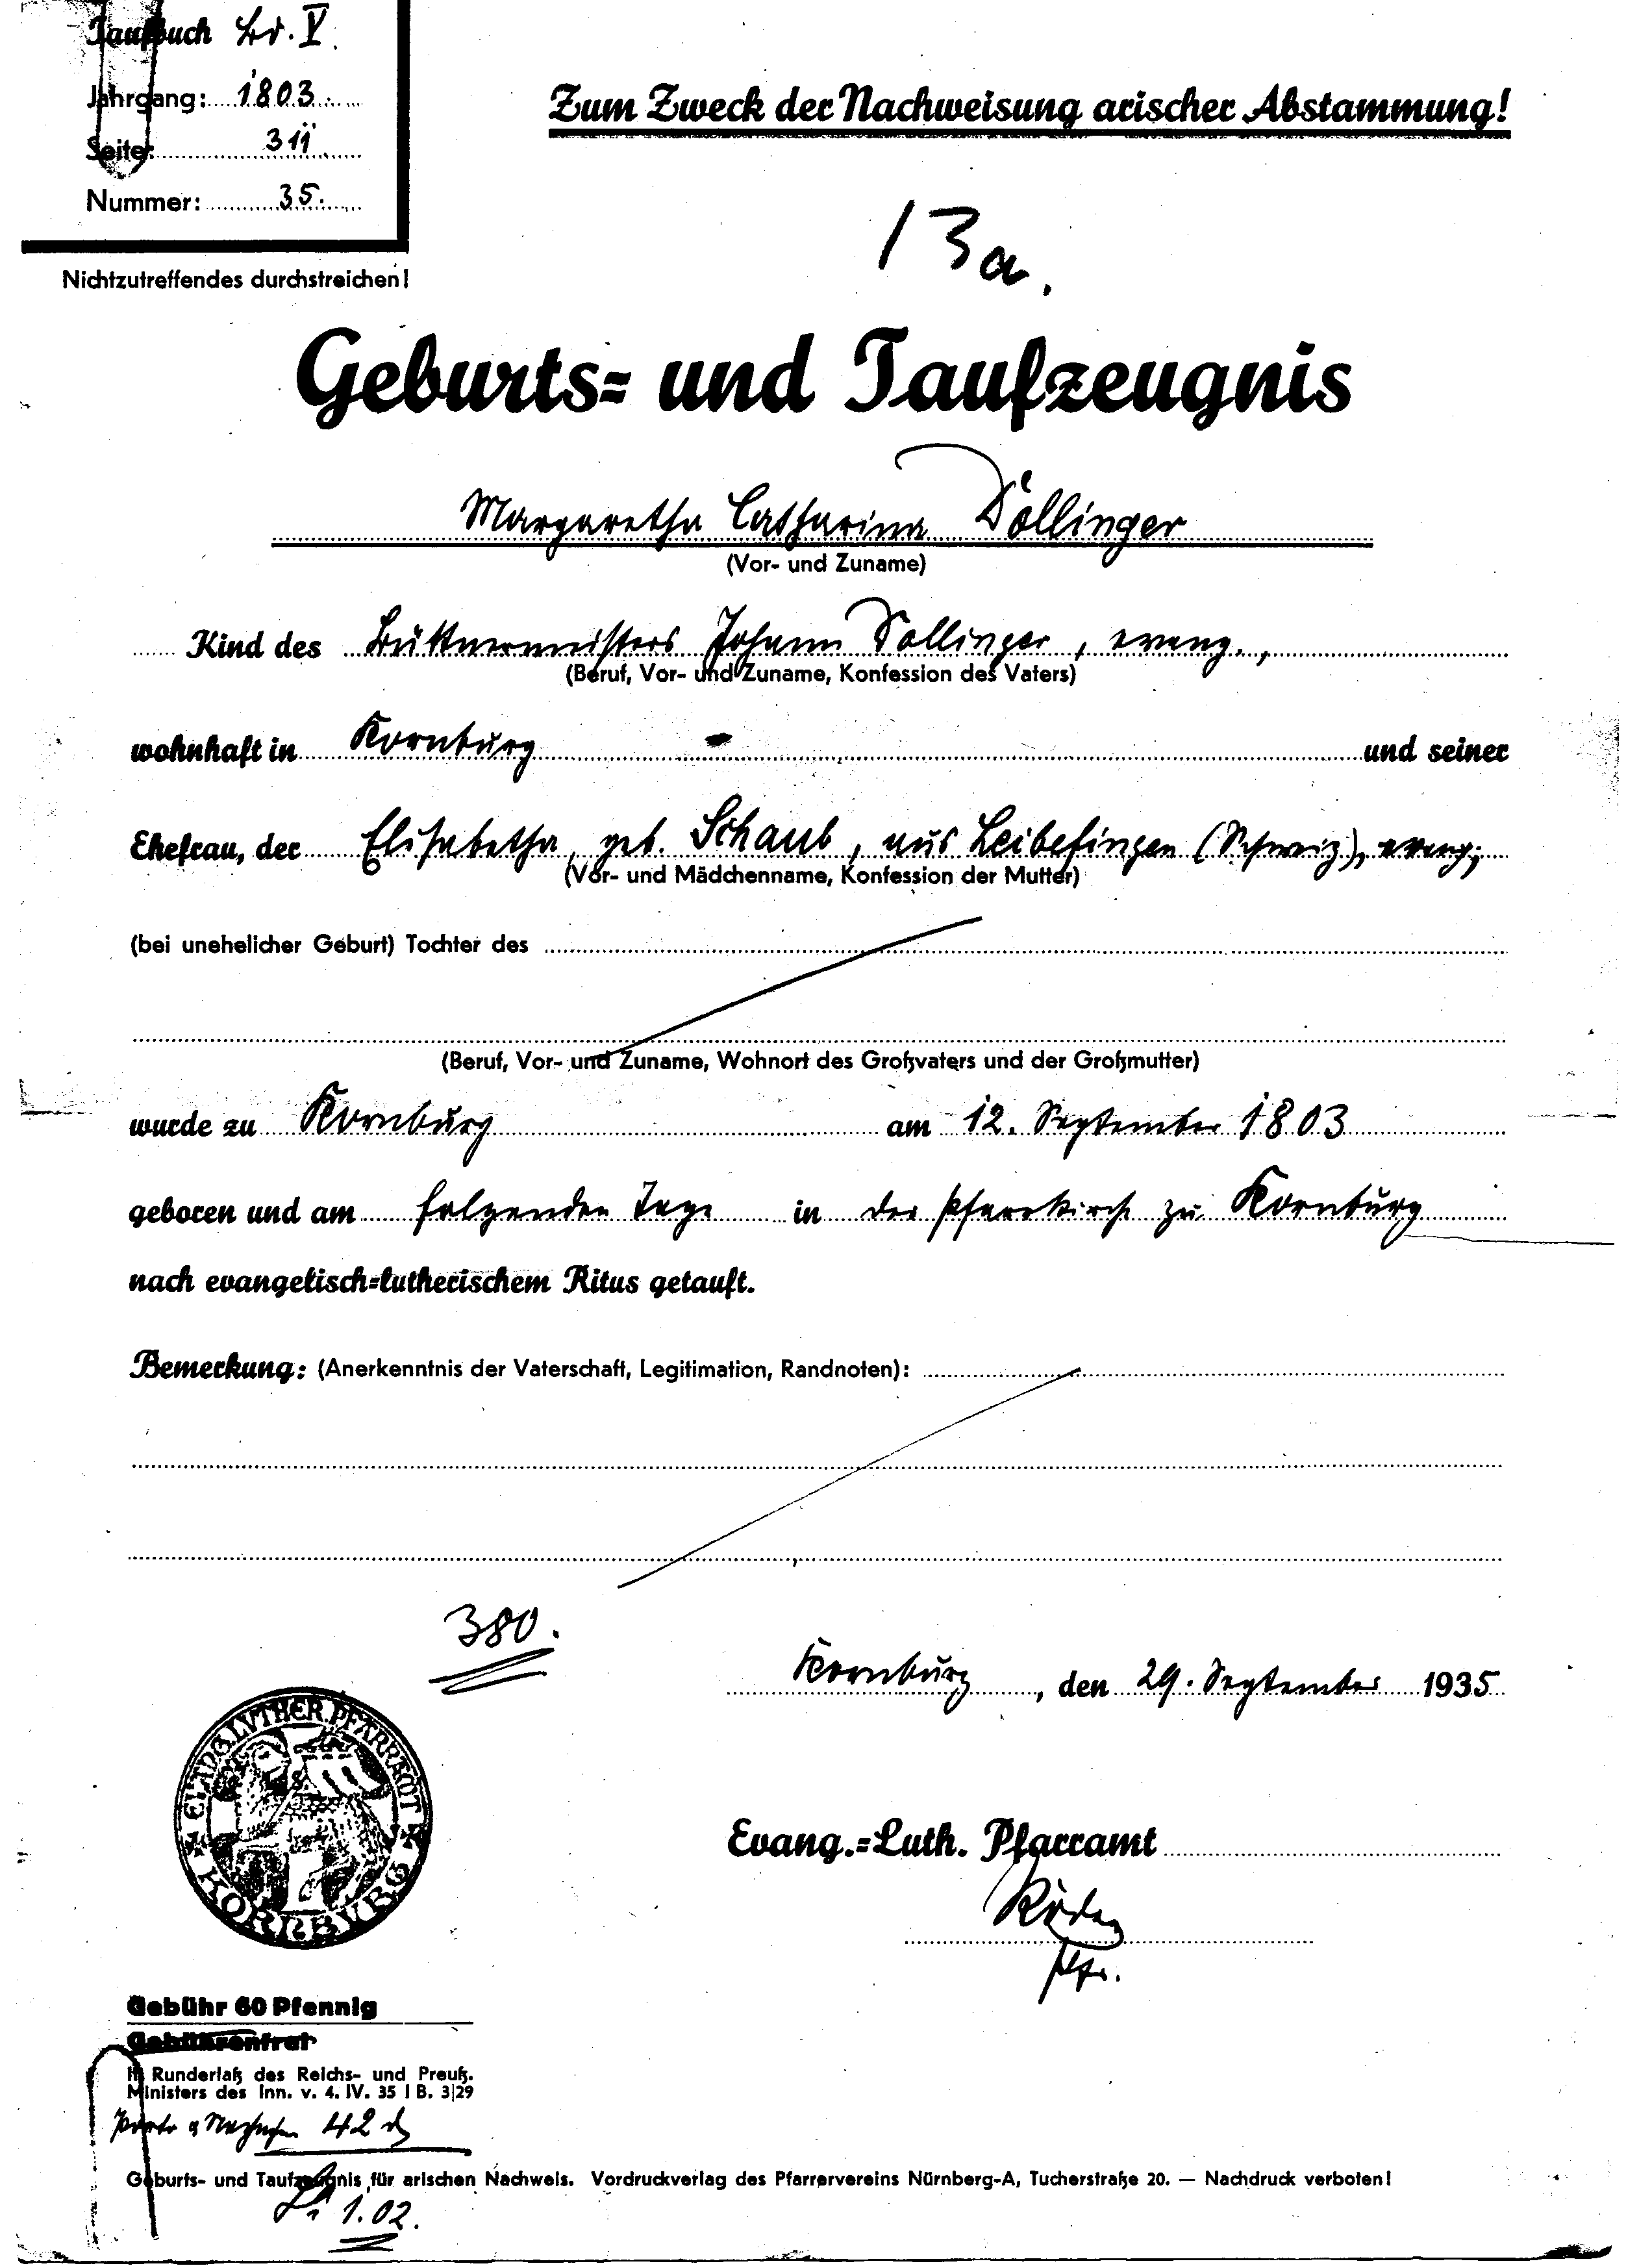 Taufbuch Bd. V.
Jahrgang: 1803.
Seite: 311.
Nummer: 35.
Nichtzutreffendes durchstreichen!
Zum Zweck der Nachweisung arischer Abstammung!
13a.
Geburts- und Taufzeugnis
Margaretha Catharina Döllinger
(Vor- und Zuname)
Kind des Büttnermeisters Johann Döllinger, evang.,
(Beruf, Vor- und Zuname, Konfession des Vaters)
wohnhaft in Kornburg und seiner
Ehefrau, der Elisabetha, geb. Schaub, aus Leibefingen (Schweiz), evang;
(Vor- und Mädchenname, Konfession der Mutter)
(bei unehelicher Geburt) Tochter des
(Beruf, Vor- und Zuname, Wohnort des Großvaters und der Großmutter)
wurde zu Kornburg am 12. September 1803
geboren und am folgenden Tage in der Pfarrkirche zu Kornburg
nach evangelisch-lutherischem Ritus getauft.
Bemerkung: (Anerkenntnis der Vaterschaft, Legitimation, Randnoten):
380.
Kornburg, den 29. September 1935
EVANG. LVTHER. PFARRAMT
KORNBVRG
Evang.-Luth. Pfarramt
Pfr.
Gebühr 60 Pfennig
Gebührenfrei
lt. Runderlaß des Reichs- und Preuß.
Ministers des Inn. v. 4. IV. 35 I B. 3|29
Porto & Nachnahme 42 d
Geburts- und Taufzeugnis für arischen Nachweis. Vordruckverlag des Pfarrervereins Nürnberg-A, Tucherstraße 20. — Nachdruck verboten!
1.02.